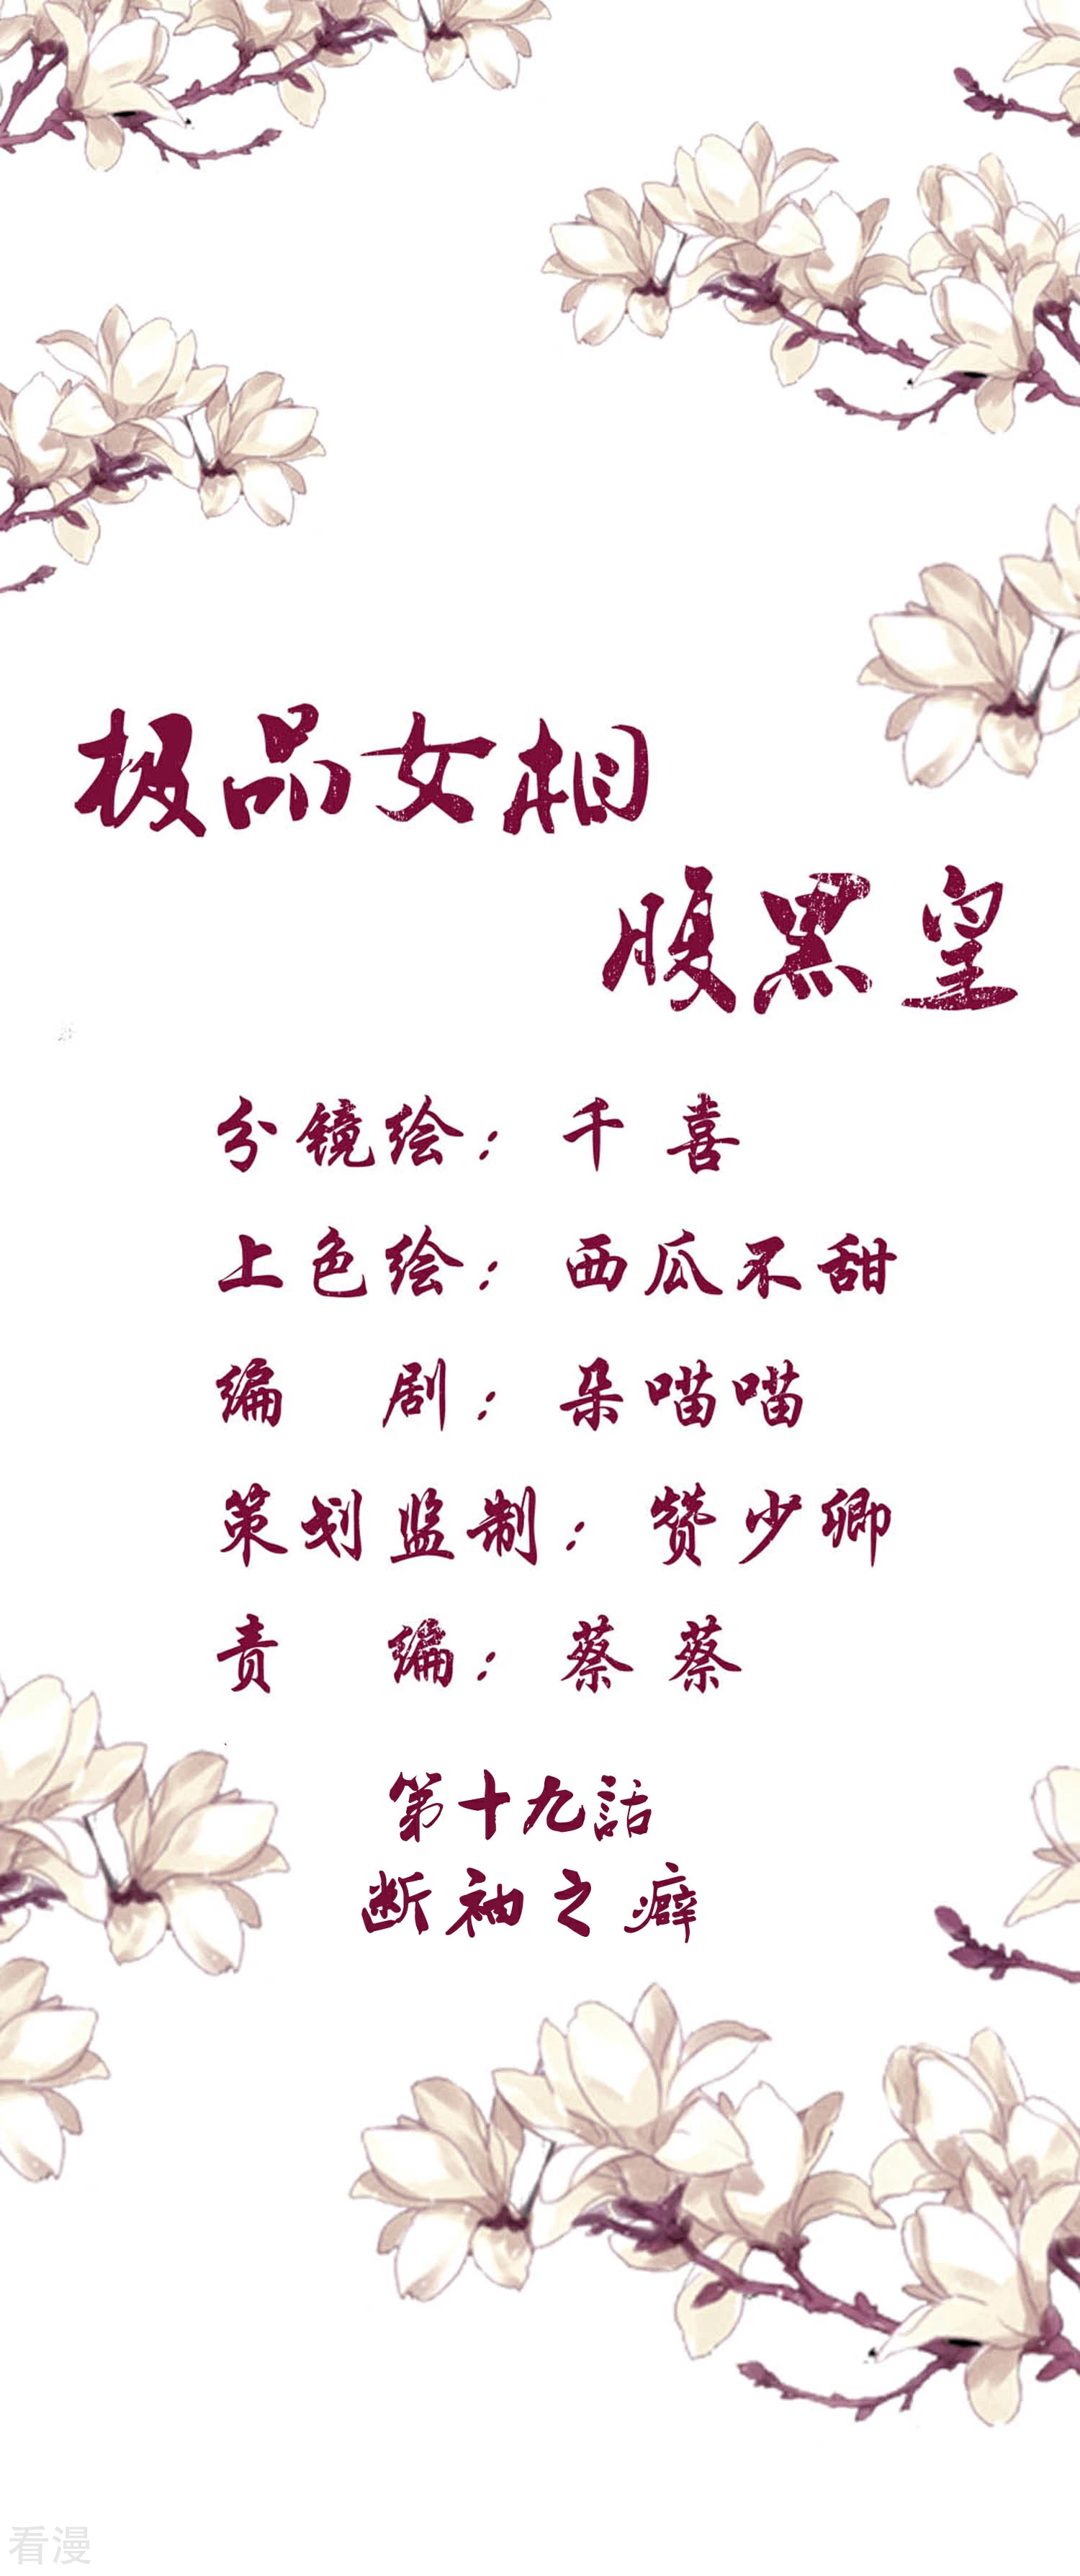 极品女相
腹黑皇
分镜绘：千喜
上色绘：西瓜不甜
编剧：朵喵喵
策划监制：赞少卿
责编：蔡蔡
第十九話
断袖之癖
看漫